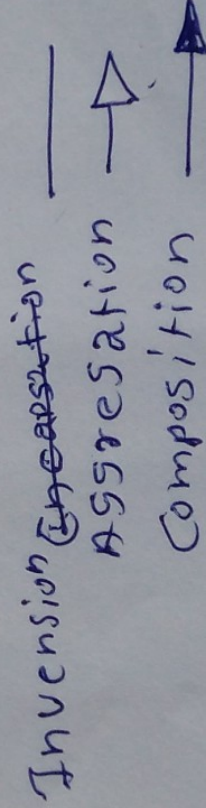 Invension
Aggregation
Composition